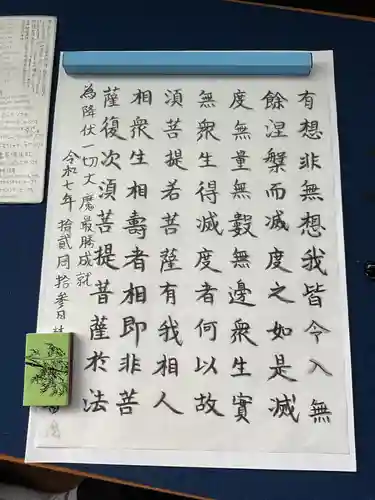 有想非無想我皆令入無
餘涅槃而滅度之如是滅
度無量無數無邊衆生實
無衆生得滅度者何以故
須菩提若菩薩有我相人
相衆生相壽者相即非菩
薩復次須菩提菩薩於法
為降伏一切丈魔最勝成就
令和七年 拾貳月拾参日